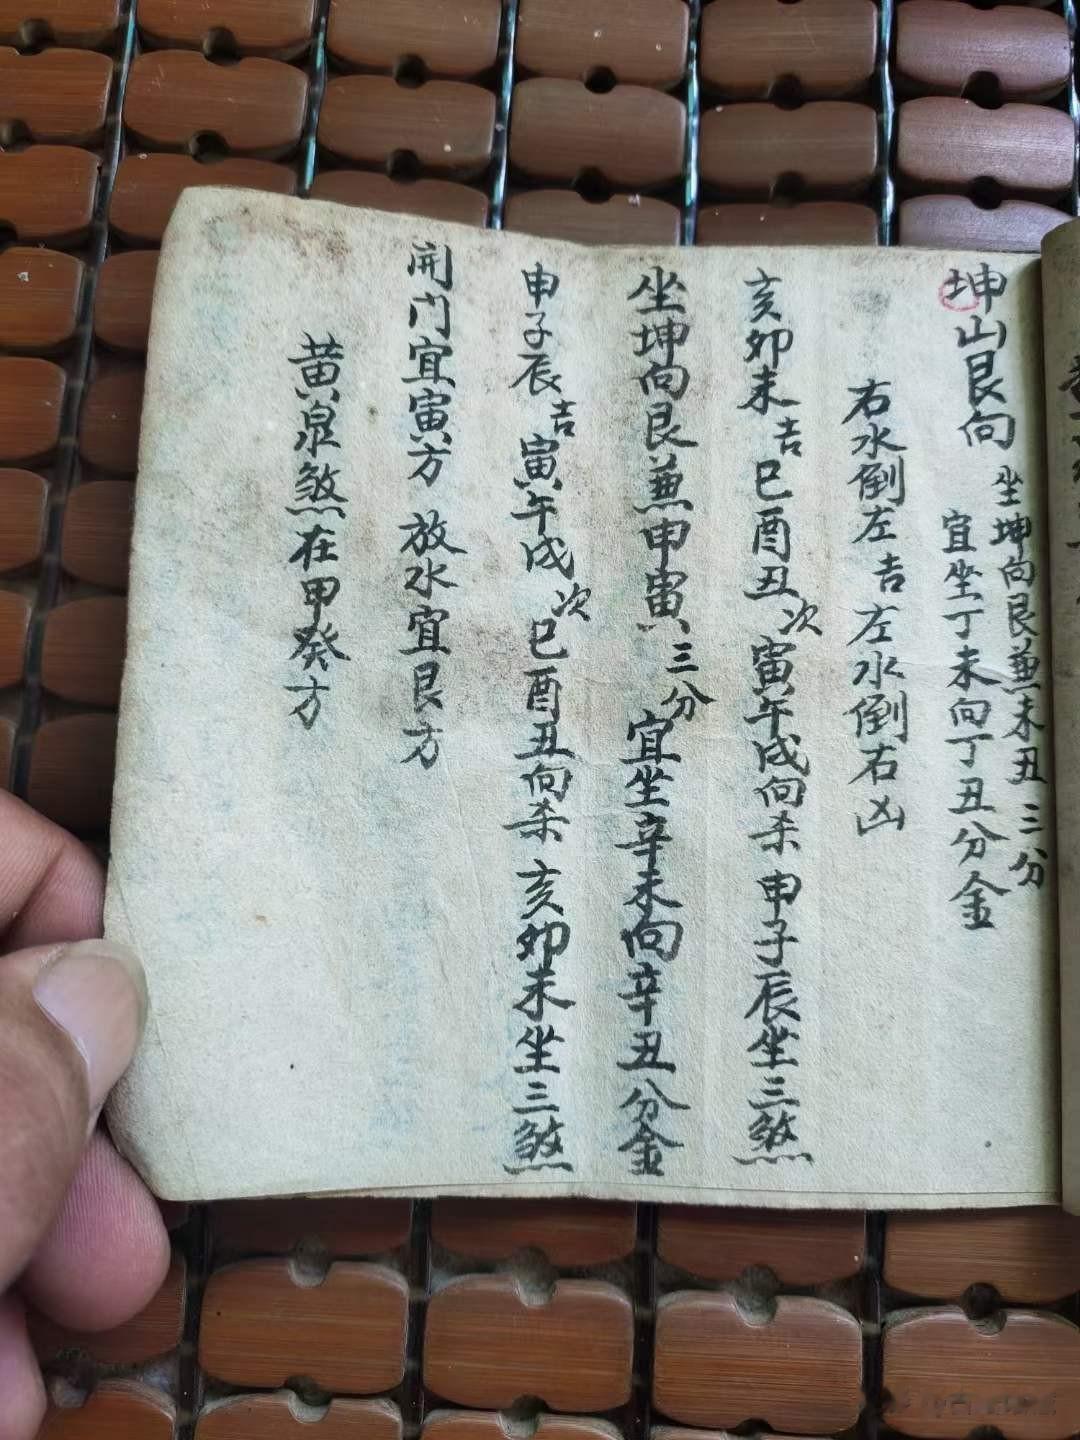 坤山艮向
坐坤向艮兼未丑三分
宜坐丁未向丁丑分金
右水倒左吉左水倒右凶
亥卯未吉巳酉丑次寅午戌向杀申子辰坐三煞
坐坤向艮兼申寅三分宜坐辛未向辛丑分金
申子辰吉寅午戌次巳酉丑向杀亥卯未坐三煞
開门宜寅方放水宜艮方
黄泉煞在甲癸方